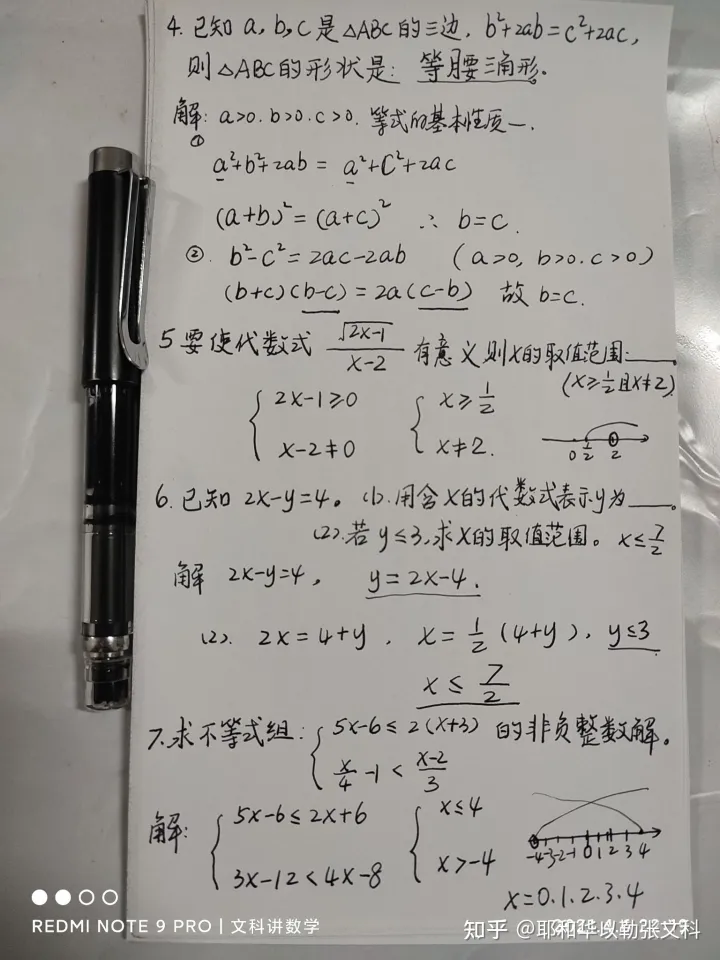 4. 已知 a, b, c 是 △ABC 的三边, b²+2ab=c²+2ac,
则 △ABC 的形状是: 等腰三角形.
解: a>0. b>0. c>0. 等式的基本性质一.
① a²+b²+2ab = a²+c²+2ac
(a+b)²=(a+c)² ∴ b=c.
②. b²-c²=2ac-2ab (a>0, b>0. c>0)
(b+c)(b-c)=2a(c-b) 故 b=c.
5 要使代数式 √(2x-1)/(x-2) 有意义则x的取值范围:____.
(x≥1/2且x≠2)
{ 2x-1≥0 { x≥1/2
x-2≠0 x≠2. 0 1/2 2
6. 已知 2x-y=4。(1).用含x的代数式表示y为____。
(2).若 y≤3,求x的取值范围。 x≤7/2
解 2x-y=4, y=2x-4.
(2). 2x=4+y, x=1/2(4+y), y≤3
x≤7/2
7.求不等式组: { 5x-6≤2(x+3) 的非负整数解。
x/4-1<(x-2)/3
解: { 5x-6≤2x+6 { x≤4
-4-3-2-1 0 1 2 3 4
3x-12<4x-8 x>-4
x=0.1.2.3.4
REDMI NOTE 9 PRO | 文科讲数学
知乎 @耶和华以勒张文科